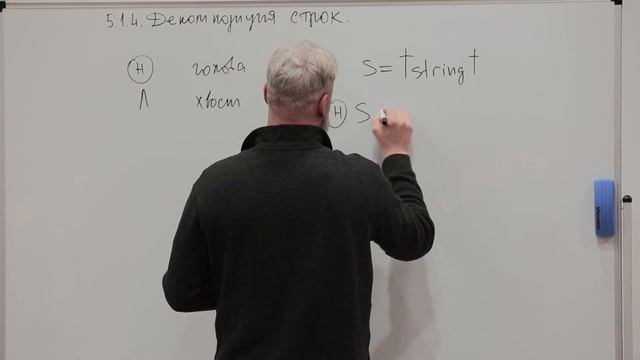 5.1.4. Декомпозиция строк.
Н голова S = †string†
Λ хвост Н S